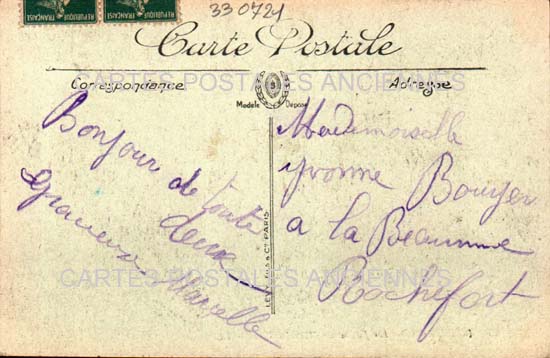 33 0721
RÉPUBLIQUE FRANÇAISE
RÉPUBLIQUE FRANÇAISE
Carte Postale
CARTES POSTALES ANCIENNES
Correspondance
Adresse
Modèle Déposé
Bonjour de toute
deux
Marcelle
Mademoiselle
Yvonne Bouyer
a la Beaumme
Rochefort
CARTES POSTALES ANCIENNES
PARIS